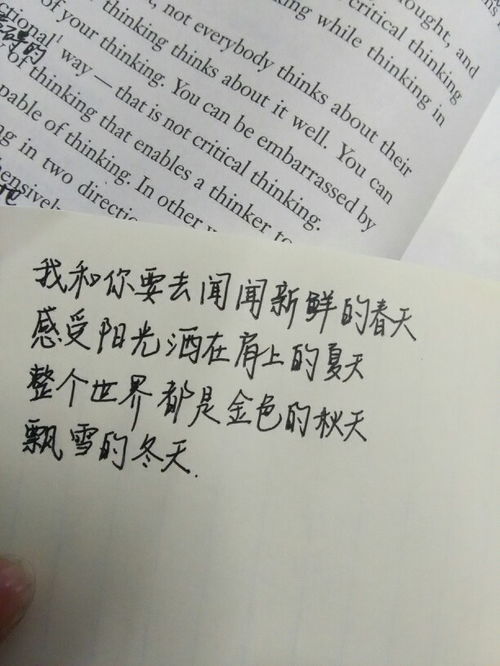 ought, and
critical thinking
, not everybody thinks about their
while thinking in
thinking thinks about it well. You can
ctional¹ way — that is not critical thinking.
of your thinking. You can be embarrassed by
of thinking that enables a thinker to
pable of thinking. In other
ng in two directio
ensivel
我和你要去闻闻新鲜的春天
感受阳光洒在肩上的夏天
整个世界都是金色的秋天
飘雪的冬天.